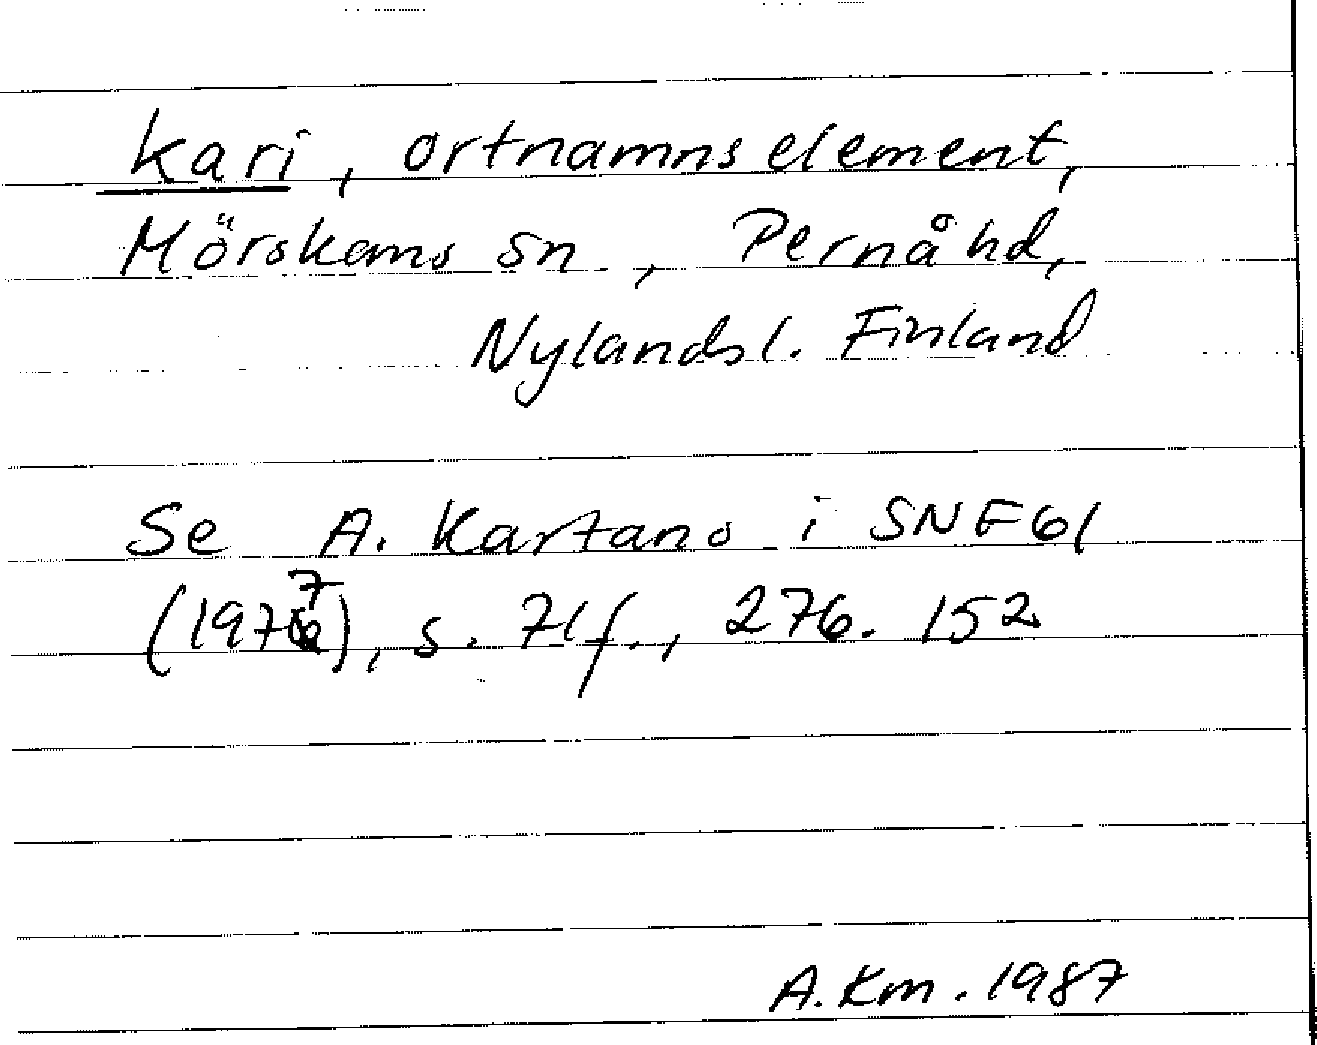 kari, ortnamnselement,
Mörskoms sn, Pernå hd,
Nylands l. Finland
Se A. Kartano i SNF 61
(1977), s. 71 f., 276. 152
A. Km. 1987